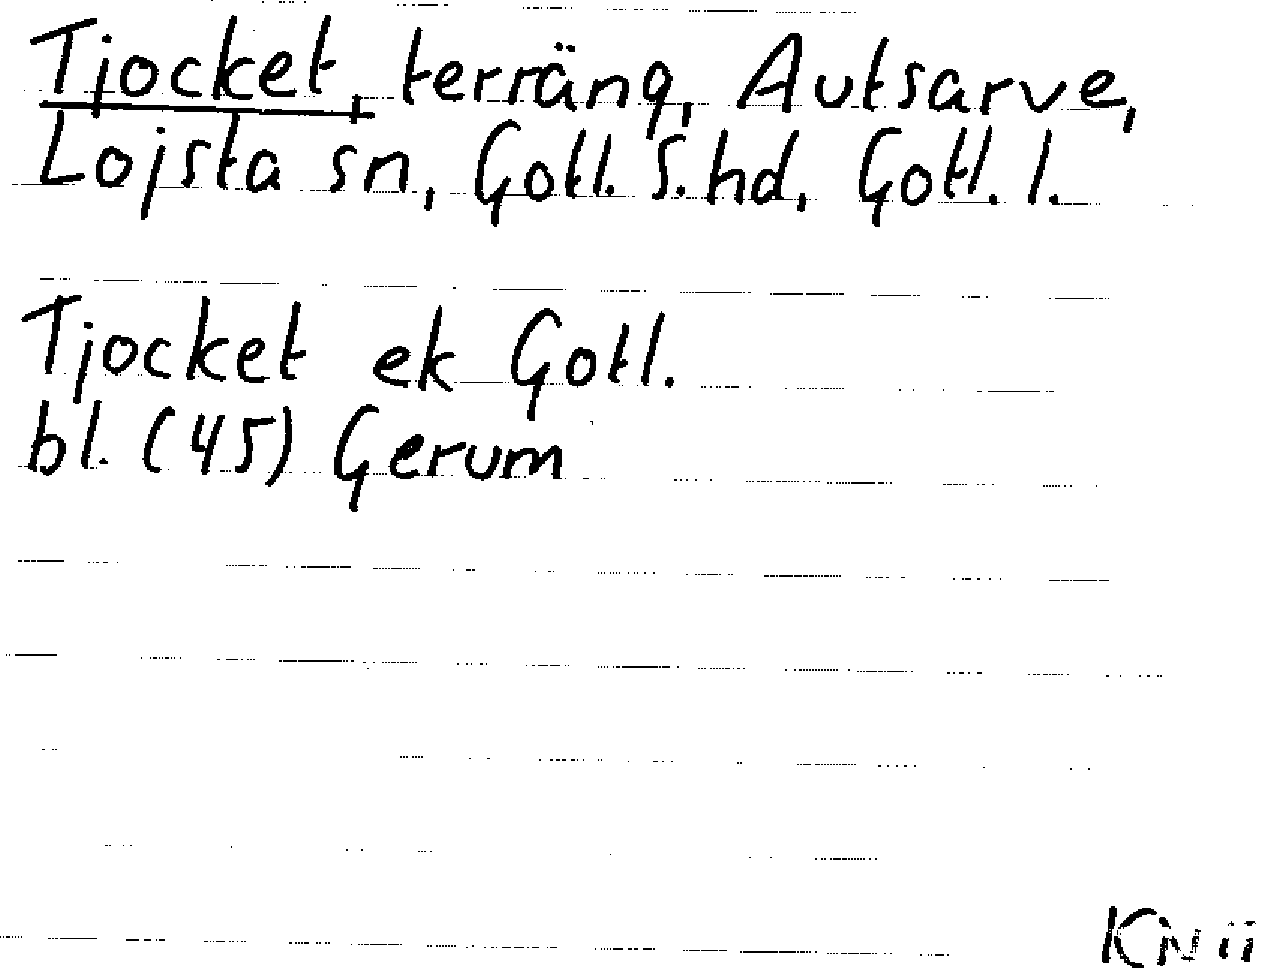 Tjocket, terräng, Autsarve,
Lojsta sn, Gotl. S. hd, Gotl. l.
Tjocket ek Gotl.
bl. (45) Gerum